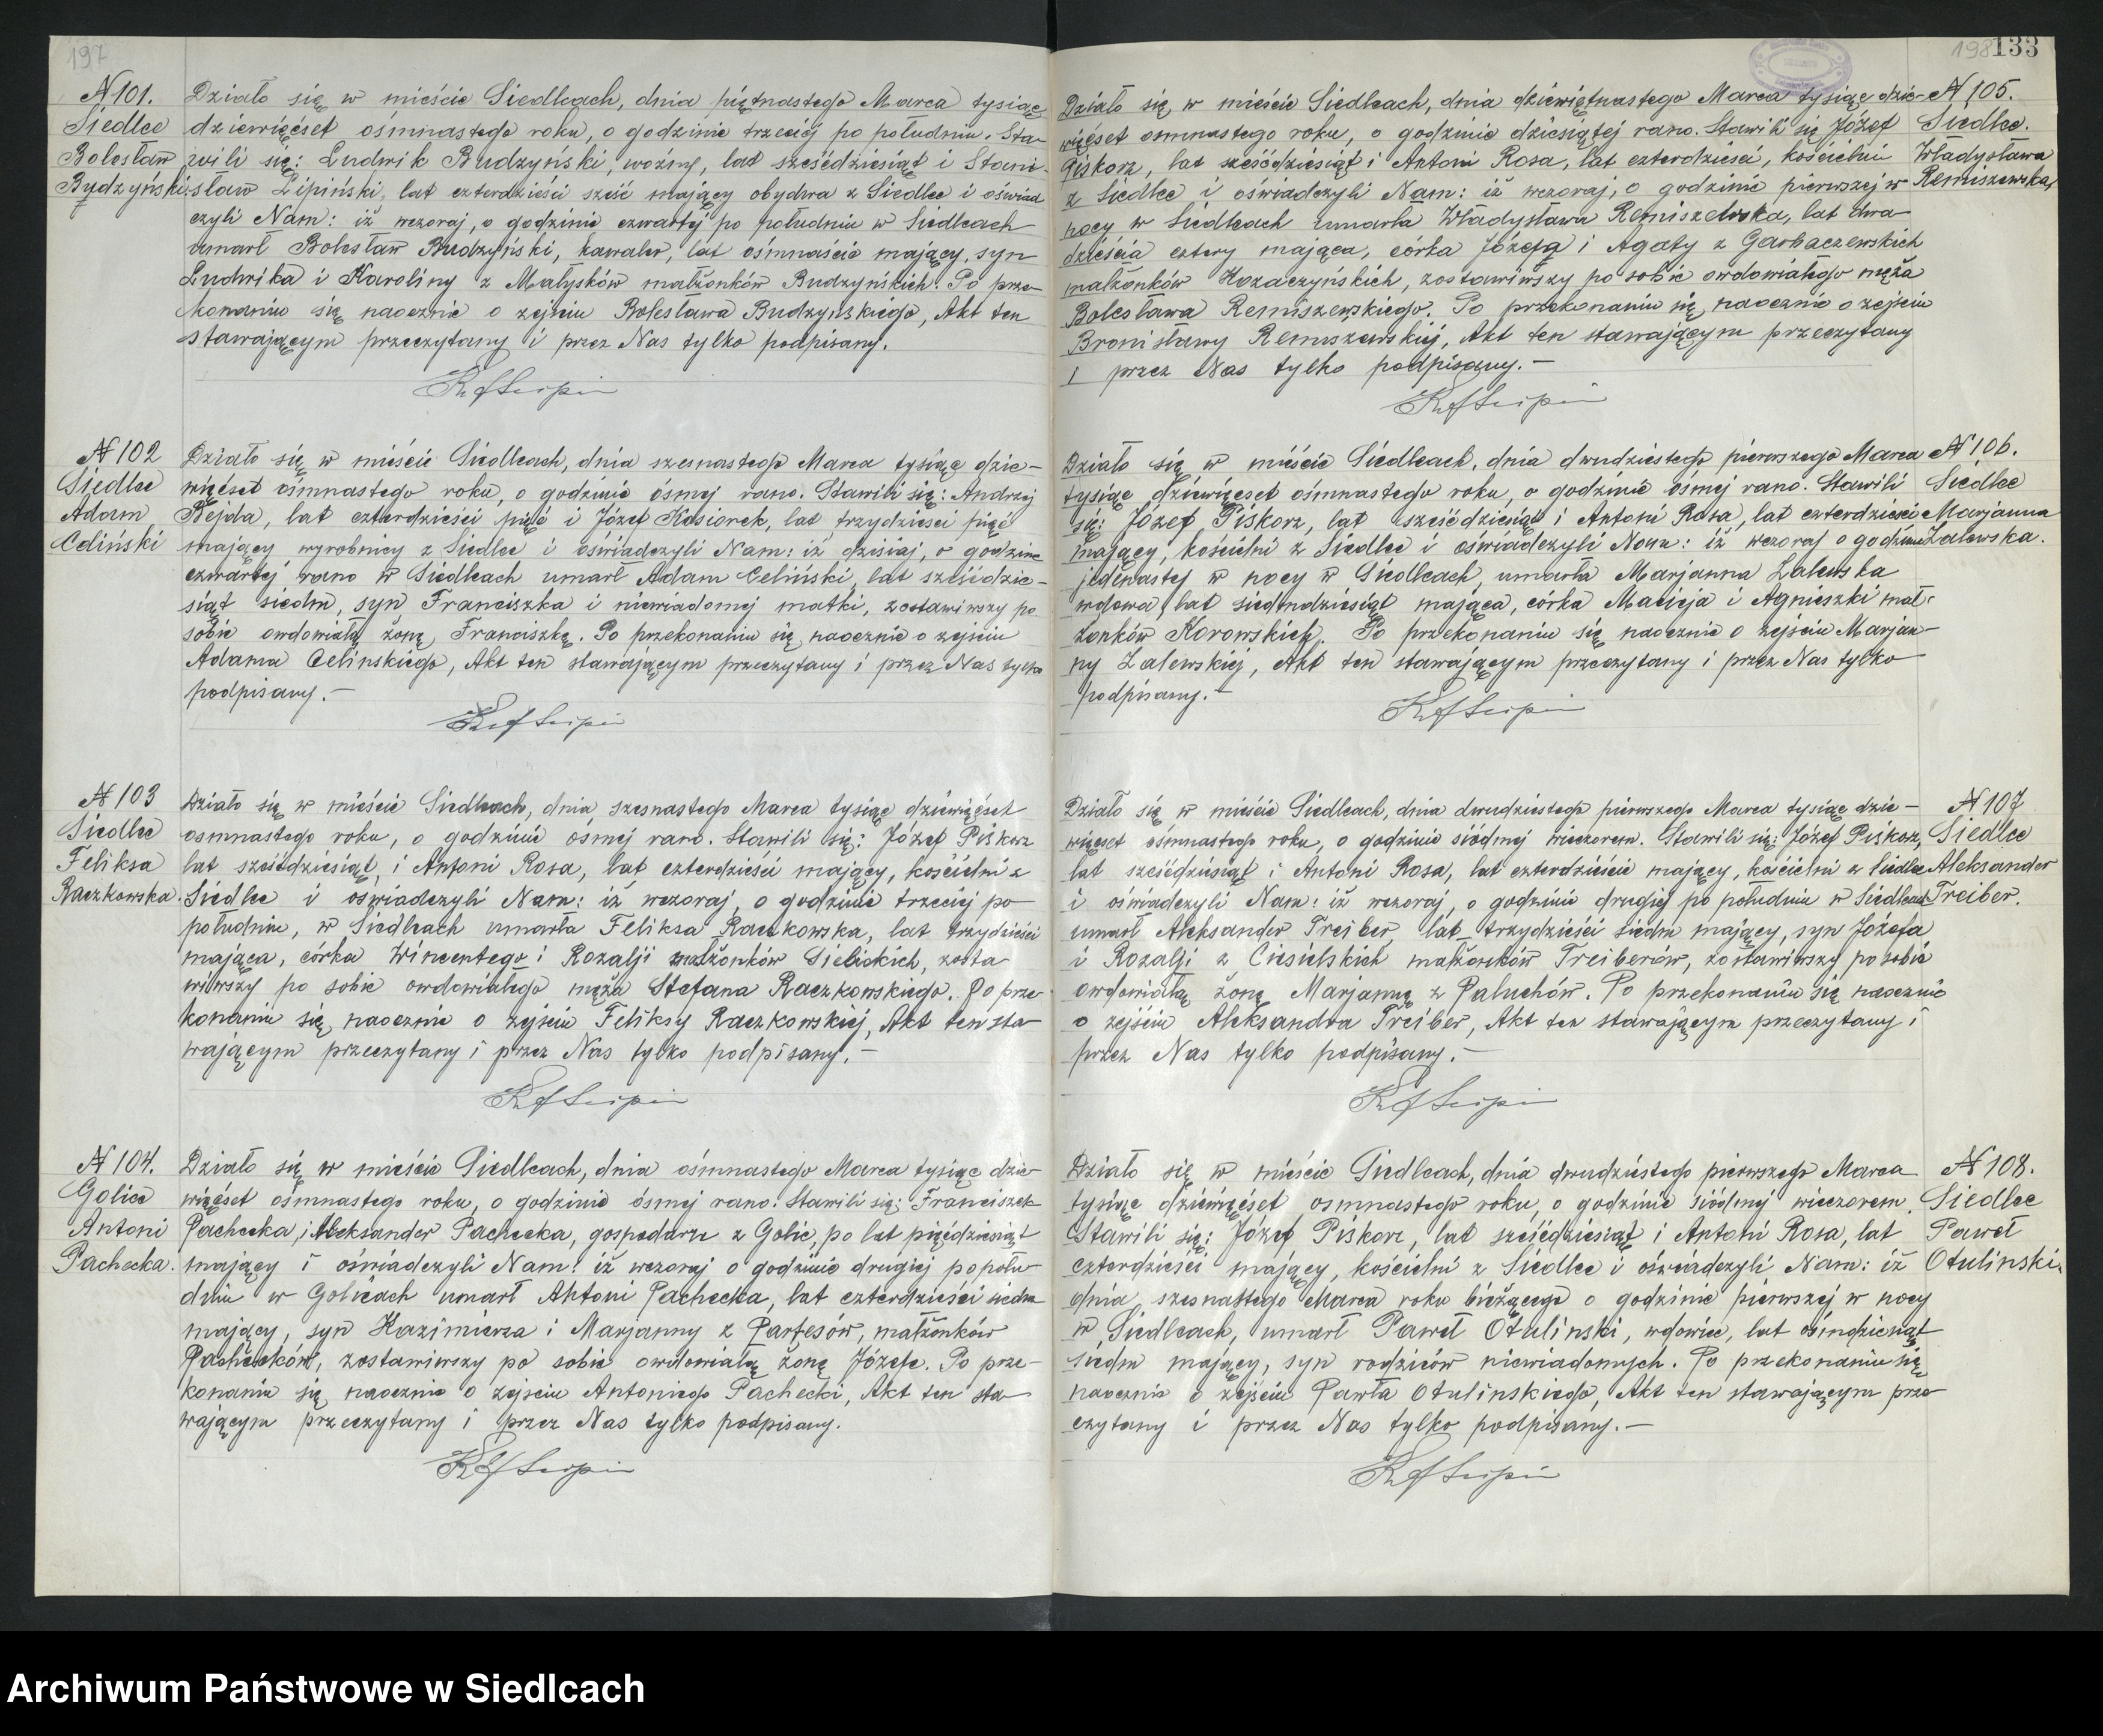 197
N 101.
Siedlce
Bolesław
Bydzyński
Działo się w mieście Siedlcach, dnia piętnastego Marca tysiąc
dziewięćset ośmnastego roku, o godzinie trzeciej po południu. Sta-
wili się: Ludwik Budzyński, woźny, lat sześćdziesiąt i Stani-
sław Lipiński, lat czterdzieści sześć mający obydwa z Siedlec i oświad
czyli Nam: iż wczoraj, o godzinie czwartej po południu w Siedlcach
umarł Bolesław Budzyński, kawaler, lat ośmnaście mający, syn
Ludwika i Karoliny z Małysków małżonków Budzyńskich. Po prze-
konaniu się naocznie o zejściu Bolesława Budzyńskiego, Akt ten
stawającym przeczytany i przez Nas tylko podpisany.
N 102
Siedlce
Adam
Celiński
Działo się w mieście Siedlcach, dnia szesnastego Marca tysiąc dzie-
więćset ośmnastego roku, o godzinie ósmej rano. Stawili się: Andrzej
Rejda, lat czterdzieści pięć i Józef Kosiorek, lat trzydzieści pięć
mający wyrobnicy z Siedlec i oświadczyli Nam: iż dzisiaj, o godzinie
czwartej rano w Siedlcach umarł Adam Celiński, lat sześćdzie-
siąt siedm, syn Franciszka i niewiadomej matki, zostawiwszy po
sobie owdowiałą żonę Franciszkę. Po przekonaniu się naocznie o zejściu
Adama Celinskiego, Akt ten stawającym przeczytany i przez Nas tylko
podpisany.-
N 103
Siedlce
Feliksa
Raczkowska.
Działo się w mieście Siedlcach, dnia szesnastego Marca tysiąc dziewięćset
osmnastego roku, o godzinie osmej rano. Stawili się: Józef Piskorz
lat sześćdziesiąt, i Antoni Rosa, lat czterdzieści mający, kościelni z
Siedlec i oświadczyli Nam: iż wczoraj, o godzinie trzeciej po
południu, w Siedlcach umarła Feliksa Raczkowska, lat trzydzieści
mająca, córka Wincentego i Rozalji małżonków Sielickich, zosta
wiwszy po sobie owdowiałego męża Stefana Raczkowskiego. Po prze
konaniu się naocznie o zejściu Feliksy Raczkowskiej, Akt ten sta
wającym przeczytany i przez Nas tylko podpisany.-
N 104.
Golice
Antoni
Pachecka.
Działo się w mieście Siedlcach, dnia ośmnastego Marca tysiąc dzie-
więćset ośmnastego roku, o godzinie ósmej rano. Stawili się: Franciszek
Pachecka, i Aleksander Pachecka, gospodarze z Golic, po lat pięćdziesiąt
mający i oświadczyli Nam: iż wczoraj o godzinie drugiej popołu-
dniu w Golicach umarł Antoni Pachecka, lat czterdzieści siedm
mający, syn Kazimierza i Marjanny z Partesów, małżonków
Pachecków, zostawiwszy po sobie owdowiałą żonę Józefę. Po prze-
konaniu się naocznie o zejściu Antoniego Pachecki, Akt ten sta-
wającym przeczytany i przez Nas tylko podpisany.
198
133
N 105.
Siedlce.
Władysława
Remiszewska
Działo się w mieście Siedlcach, dnia dziewiętnastego Marca tysiąc dzie-
więćset osmnastego roku, o godzinie dziesiątej rano. Stawili się Józef
Piskorz, lat sześćdziesiąt i Antoni Rosa, lat czterdzieści, kościelni
z Siedlec i oświadczyli Nam: iż wczoraj, o godzinie pierwszej w
nocy w Siedlcach umarła Władysława Remiszewska, lat dwa-
dzieścia cztery mająca, córka Józefa i Agaty z Garbaczewskich
małżonków Kozaczyńskich, zostawiwszy po sobie owdowiałego męża
Bolesława Remiszewskiego. Po przekonaniu się naocznie o zejściu
Bronisławy Remiszewskiej, Akt ten stawającym przeczytany
i przez Nas tylko podpisany.-
N 106.
Siedlce
Marjanna
Zalewska.
Działo się w mieście Siedlcach, dnia dwudziestego pierwszego Marca
tysiąc dziewięćset ośmnastego roku, o godzinie osmej rano. Stawili
się: Józef Piskorz, lat sześćdziesiąt i Antoni Rosa, lat czterdzieści
mający, kościelni z Siedlec i oświadczyli Nam: iż wczoraj o godzinie
jedenastej w nocy w Siedlcach, umarła Marjanna Zalewska
wdowa, lat siedmdziesiąt mająca, córka Macieja i Agnieszki mał-
żonków Korowskich. Po przekonaniu się naocznie o zejściu Marjan-
ny Zalewskiej, Akt ten stawającym przeczytany i przez Nas tylko
podpisany.-
N 107
Siedlce
Aleksander
Treiber.
Działo się w mieście Siedlcach, dnia dwudziestego pierwszego Marca tysiąc dzie-
więćset ośmnastego roku, o godzinie siódmej wieczorem. Stawili się: Józef Piskorz,
lat sześćdziesiąt i Antoni Rosa, lat czterdzieście mający, kościelni z Siedlec
i oświadczyli Nam: iż wczoraj, o godzinie drugiej po południu w Siedlcach
umarł Aleksander Treiber, lat trzydzieści siedm mający, syn Józefa
i Rozalji z Ciesielskich małżonków Treiberów, zostawiwszy po sobie
owdowiałą żonę Marjannę z Paluchów. Po przekonaniu się naocznie
o zejściu Aleksandra Treiber, Akt ten stawającym przeczytany i
przez Nas tylko podpisany.-
N 108.
Siedlce
Paweł
Otulinski.
Działo się w mieście Siedlcach, dnia dwudziestego pierwszego Marca
tysiąc dziewięćset osmnastego roku, o godzinie siódmej wieczorem.
Stawili się: Józef Piskorz, lat sześćdziesiąt i Antoni Rosa, lat
czterdzieści mający, kościelni z Siedlec i oświadczyli Nam: iż
dnia szesnastego Marca roku bieżącego o godzinie pierwszej w nocy
w Siedlcach, umarł Paweł Otulinski, wdowiec, lat osmdziesiąt
siedm mający, syn rodziców niewiadomych. Po przekonaniu się
naocznie o zejściu Pawła Otulinskiego, Akt ten stawającym prze
czytany i przez Nas tylko podpisany.-
Archiwum Państwowe w Siedlcach